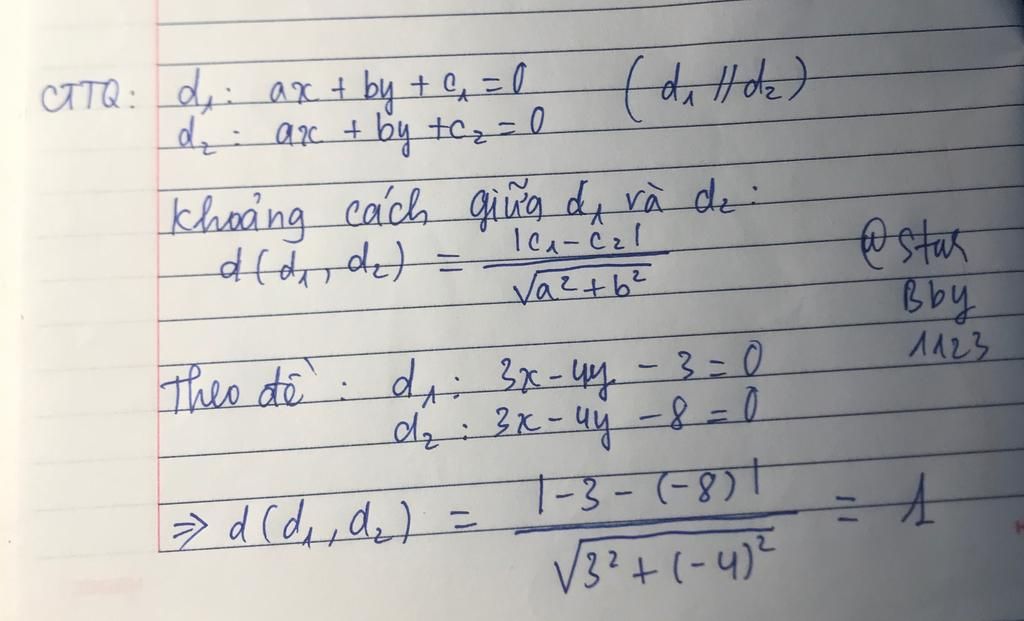 CTTQ: d₁: ax + by + c₁ = 0 (d₁ // d₂)
d₂: ax + by + c₂ = 0
Khoảng cách giữa d₁ và d₂:
d(d₁, d₂) = |c₁ - c₂| / √(a² + b²)
@ Star
Bby
1123
Theo đề: d₁: 3x - 4y - 3 = 0
d₂: 3x - 4y - 8 = 0
⇒ d(d₁, d₂) = |-3 - (-8)| / √(3² + (-4)²) = 1